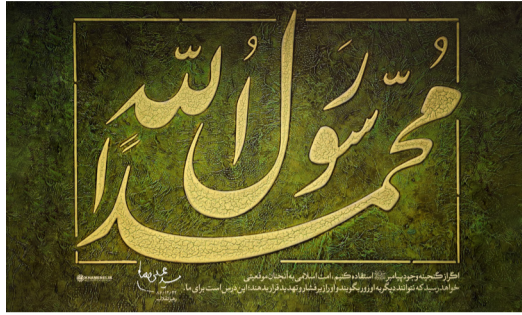 محمداً رسول الله
اگر از گنجینه وجود پیامبر ﷺ استفاده کنیم، امت اسلامی به آنچنان موقعیتی
خواهد رسید که نتوانند دیگر به او زور بگویند و او را زیر فشار و تهدید قرار بدهند؛ این درس است برای ما.